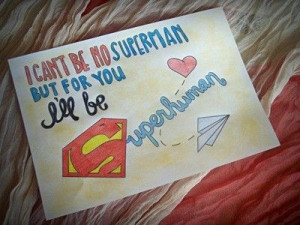 I CAN'T BE NO SUPERMAN
BUT FOR YOU
I'll be
Superhuman